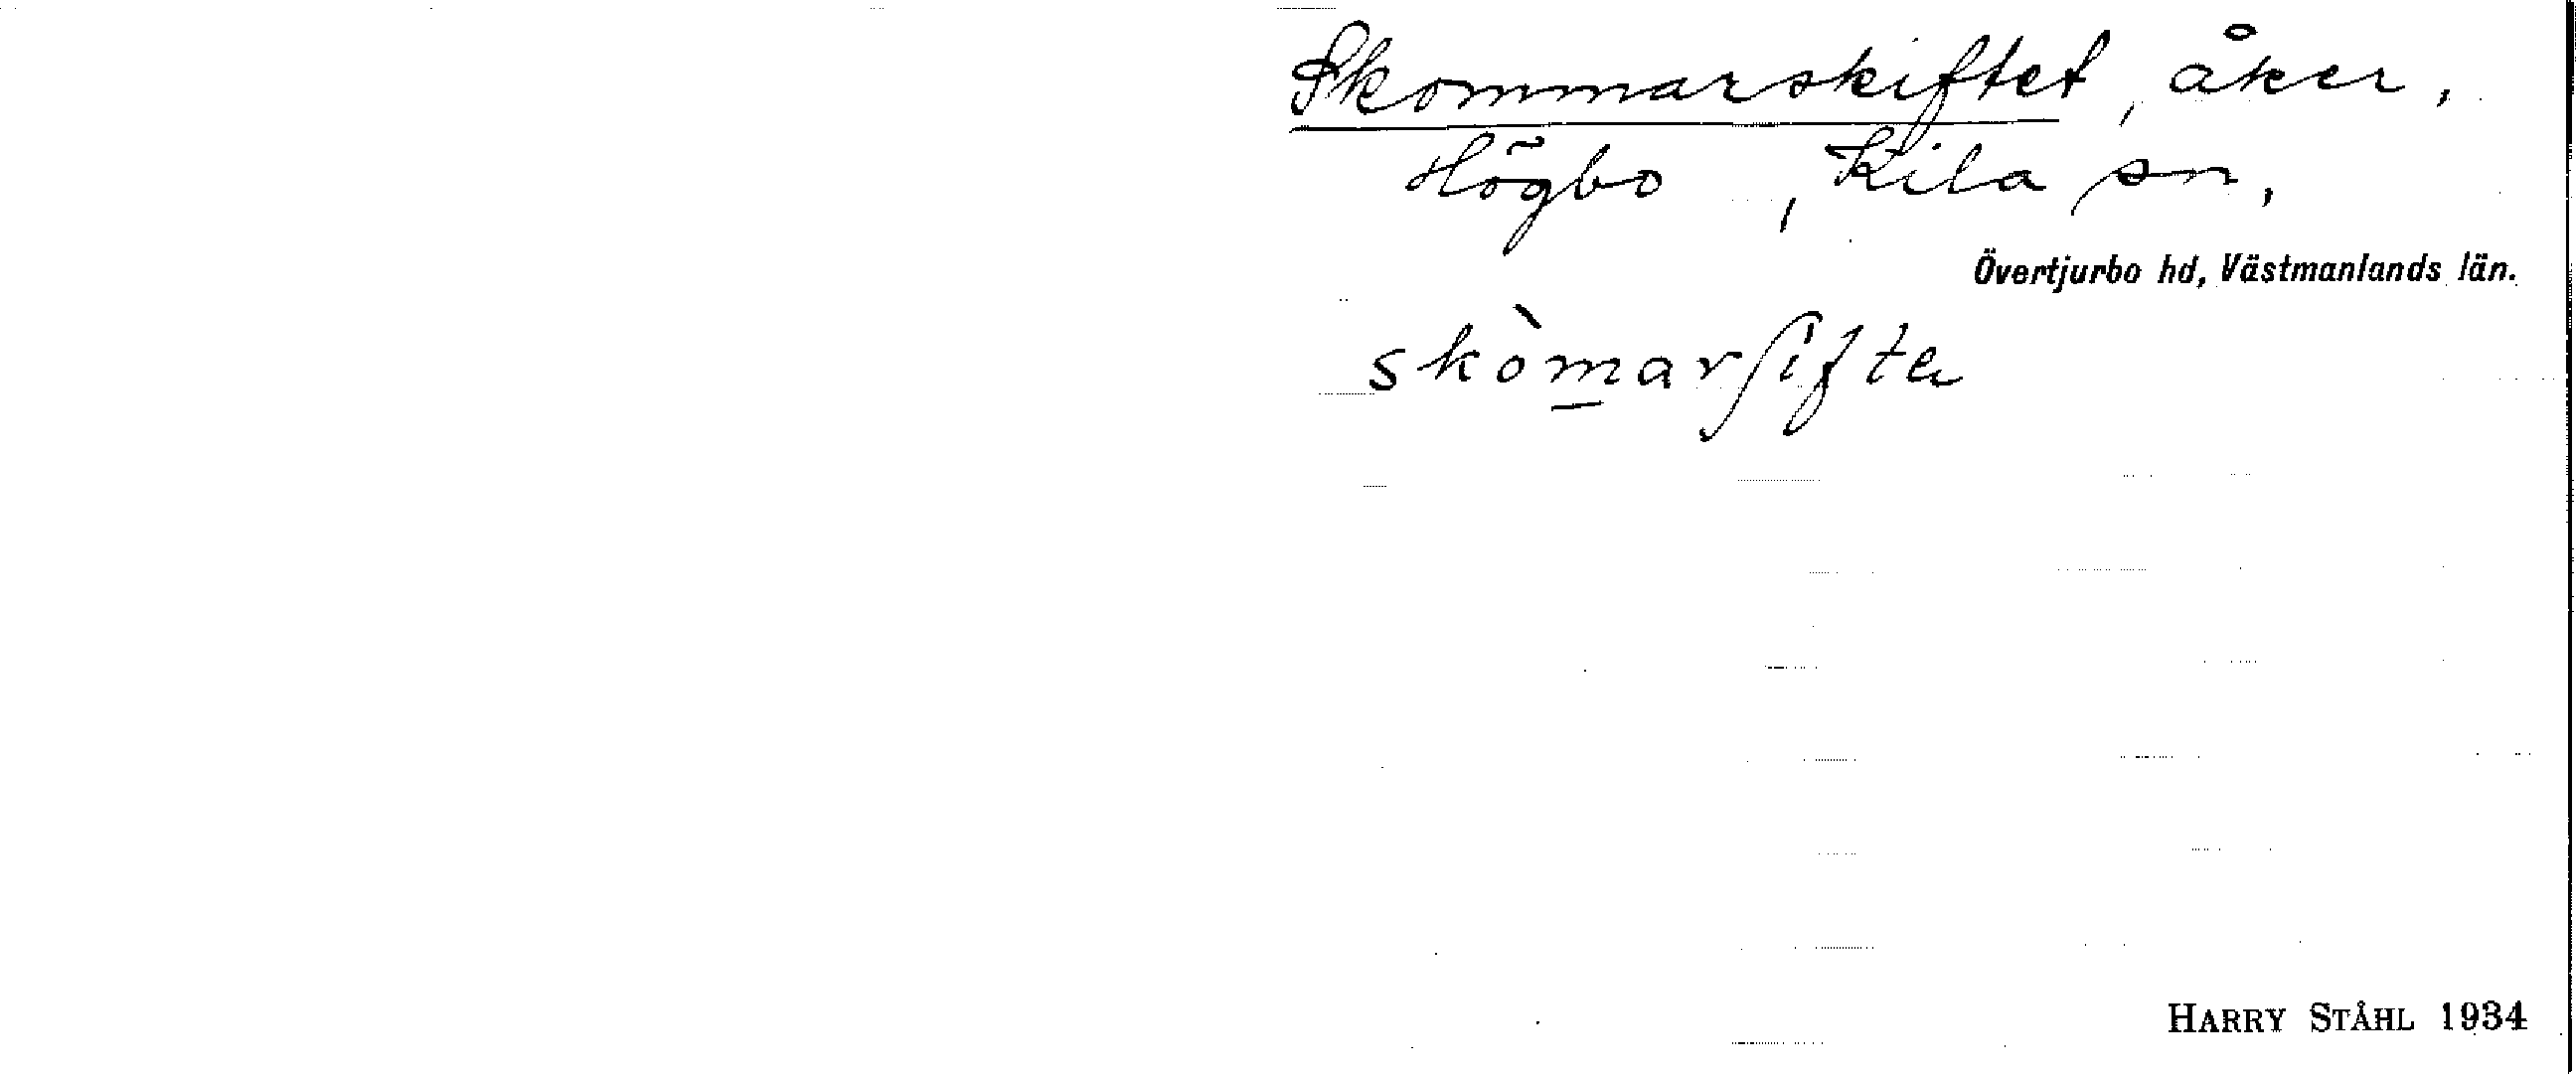 Skommarskiftet, åker,
Högbo, Kila sn,
Övertjurbo hd, Västmanlands län.
skòmarʃiftə
HARRY STÅHL 1934